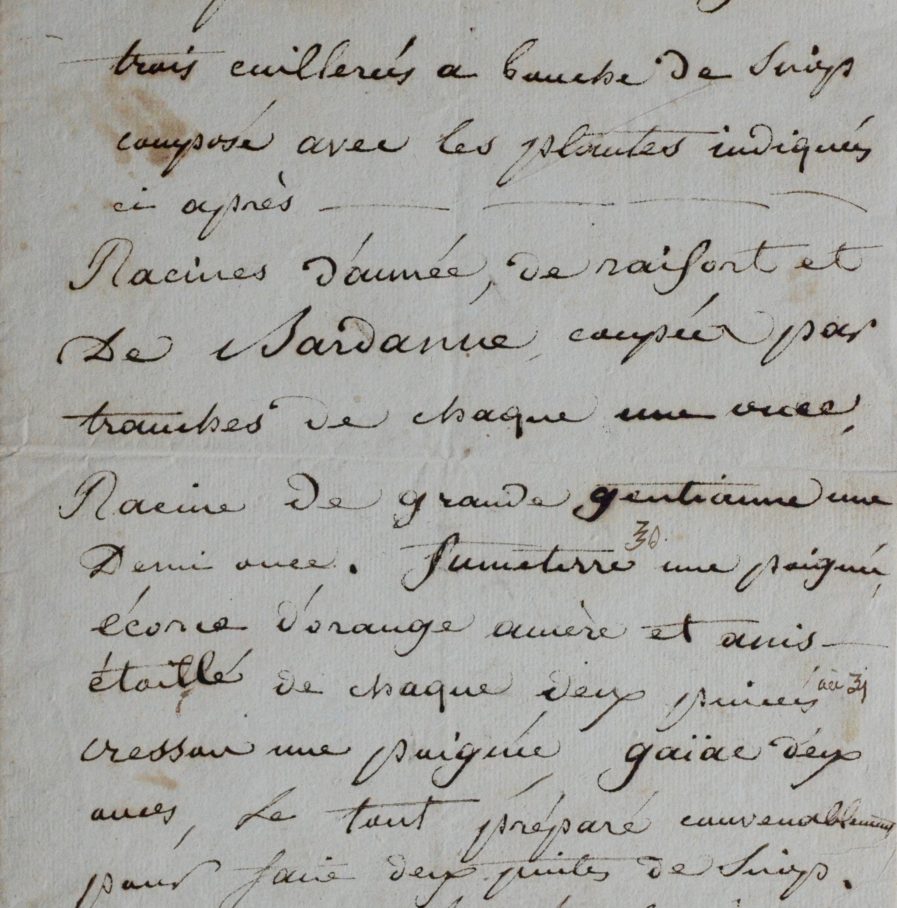 trois cuillerées a bouche de Sirop
composé avec les plantes indiquées
ci après
Racines d'aunée, de raifort et
De Bardanne coupées par
tranches de chaque une once,
Racine de grande gentianne une
Demi once. fumeterre une poignée,
écorce d'orange amère et anis-
étoillé de chaque deux pincées
cresson une poignée gaïac deux
onces, Le tout préparé convenablement
pour faire deux pintes de Sirop.